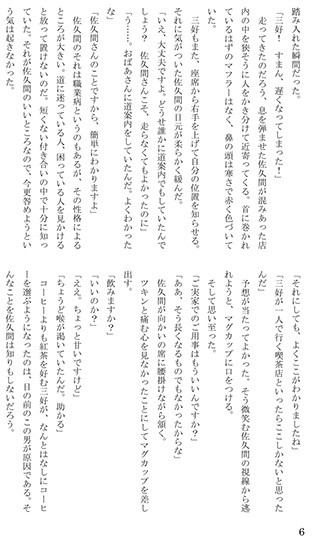 踏み入れた瞬間だった。
「三好！　すまん、遅くなってしまった！」
　走ってきたのだろう。息を弾ませた佐久間が混みあった店
内の中を狭そうに人をかき分けて近寄ってくる。首に巻かれ
ているはずのマフラーはなく、鼻の頭は寒さで赤く色づいて
いた。
　三好もまた、座席から右手を上げて自分の位置を知らせる。
それに気がついた佐久間の目元が柔らかく緩んだ。
「いえ、大丈夫ですよ。どうせ誰かに道案内でもしていたんで
しょう？　佐久間さんこそ、走らなくてもよかったのに」
「う……。おばあさんに道案内をしていたんだ。よくわかった
な」
「佐久間さんのことですから、簡単にわかりますよ」
　佐久間のそれは職業病というのもあるが、その性格による
ところが大きい。道に迷っている人、困っている人を見かける
と放って置けないのだ。短くない付き合いの中で十分に知っ
ていた。それが佐久間のいいところなので、今更咎めようとい
う気は起きなかった。
「それにしても、よくここがわかりましたね」
「三好が一人で行く喫茶店といったらここしかないと思った
んだ」
　予想が当たってよかった。そう微笑む佐久間の視線から逃
れようと、マグカップに口をつける。
　そして思い至った。
「ご実家でのご用事はもういいんですか？」
「ああ、そう長くなるものでもなかったからな」
　佐久間が向かいの席に腰掛けながら頷く。
　ツキンと痛む心を見なかったことにしてマグカップを差し
出す。
「飲みますか？」
「いいのか？」
「ええ。ちょっと甘いですけど」
「ちょうど喉が渇いていたんだ。助かる」
　コーヒーよりも紅茶を好む三好が、なんとはなしにコーヒ
ーを選ぶようになったのは、目の前のこの男が原因である。そ
んなことを佐久間は知りもしないだろう。
6